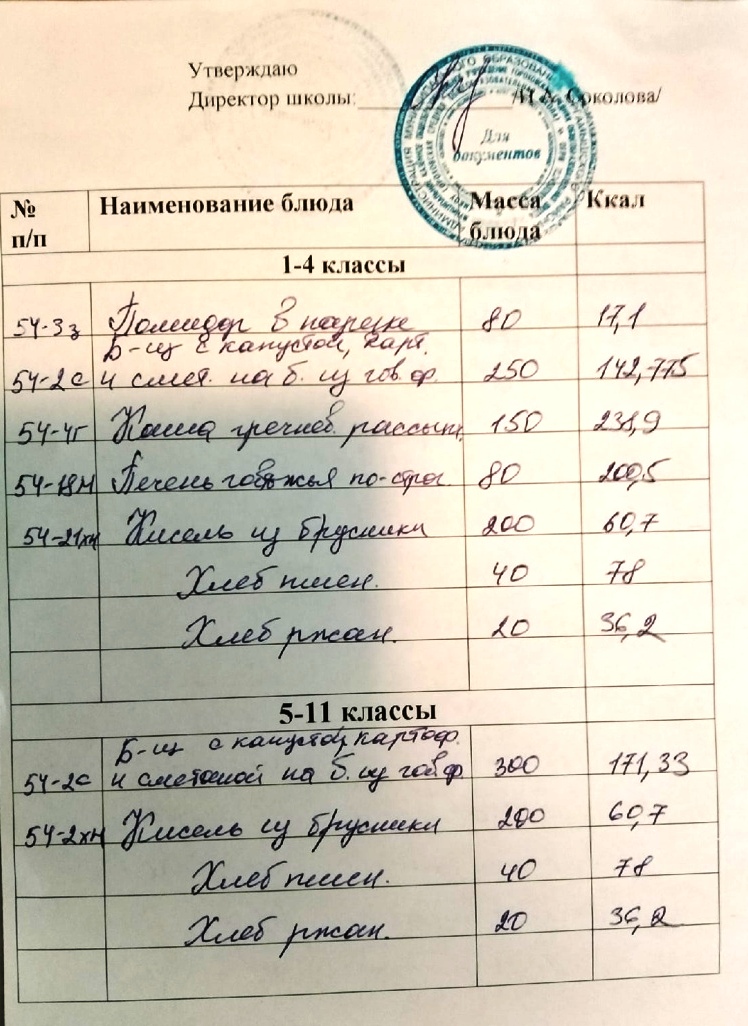 Утверждаю
Директор школы: /И.А. Соколова/
Для
документов
№ п/п Наименование блюда Масса блюда Ккал
1-4 классы
54-3з Помидор в нарезке 80 17,1
Б-щ с капустой, карт.
54-2с и смет. на б. из гов. ф. 250 142,775
54-4г Каша гречнев. рассып. 150 231,9
54-18м Печень говяжья по-строг. 80 200,5
54-21хн Кисель из брусники 200 60,7
Хлеб пшен. 40 78
Хлеб ржан. 20 36,2
5-11 классы
Б-щ с капустой, картоф.
54-2с и сметаной на б. из гов. ф 300 171,33
54-2хн Кисель из брусники 200 60,7
Хлеб пшен. 40 78
Хлеб ржан. 20 36,2